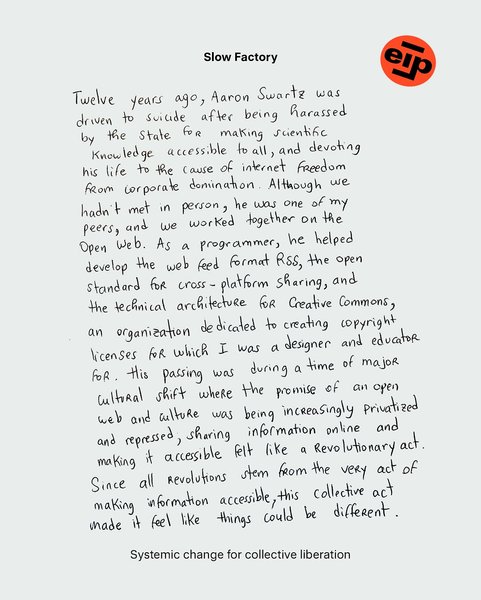 Slow Factory
eip
Twelve years ago, Aaron Swartz was
driven to suicide after being harassed
by the state for making scientific
knowledge accessible to all, and devoting
his life to the cause of internet freedom
from corporate domination. Although we
hadn't met in person, he was one of my
peers, and we worked together on the
Open Web. As a programmer, he helped
develop the web feed format RSS, the open
standard for cross-platform sharing, and
the technical architecture for Creative Commons,
an organization dedicated to creating copyright
licenses for which I was a designer and educator
for. His passing was during a time of major
cultural shift where the promise of an open
web and culture was being increasingly privatized
and repressed, sharing information online and
making it accessible felt like a revolutionary act.
Since all revolutions stem from the very act of
making information accessible, this collective act
made it feel like things could be different.
Systemic change for collective liberation